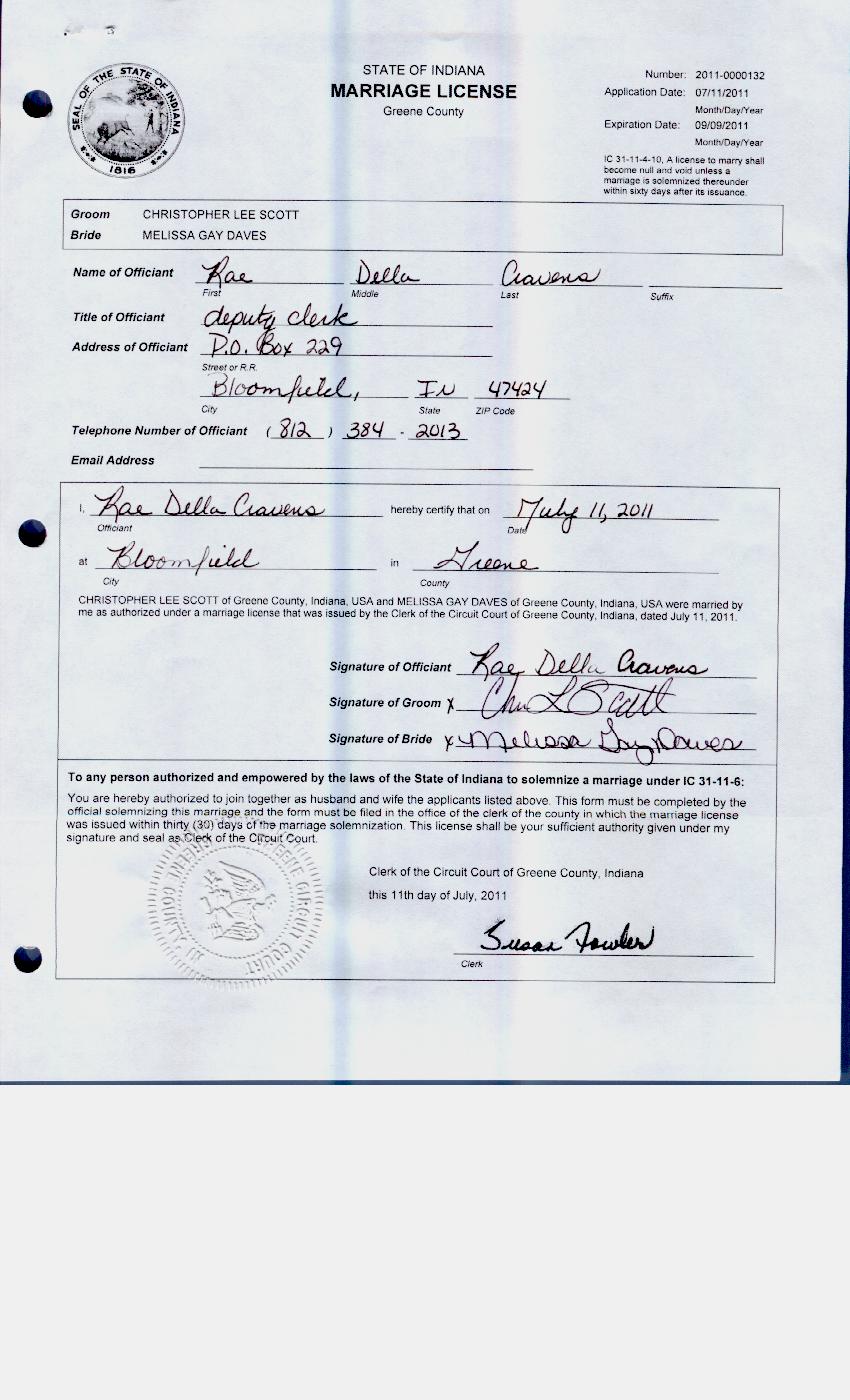 SEAL OF THE STATE OF INDIANA
1816
STATE OF INDIANA
MARRIAGE LICENSE
Greene County
Number: 2011-0000132
Application Date: 07/11/2011
Month/Day/Year
Expiration Date: 09/09/2011
Month/Day/Year
IC 31-11-4-10, A license to marry shall
become null and void unless a
marriage is solemnized thereunder
within sixty days after its issuance.
Groom CHRISTOPHER LEE SCOTT
Bride MELISSA GAY DAVES
Name of Officiant Rae Della Cravens
First Middle Last Suffix
Title of Officiant deputy clerk
Address of Officiant P.O. Box 229
Street or R.R.
Bloomfield, IN 47424
City State ZIP Code
Telephone Number of Officiant (812) 384 - 2013
Email Address
I, Rae Della Cravens hereby certify that on July 11, 2011
Officiant Date
at Bloomfield in Greene
City County
CHRISTOPHER LEE SCOTT of Greene County, Indiana, USA and MELISSA GAY DAVES of Greene County, Indiana, USA were married by
me as authorized under a marriage license that was issued by the Clerk of the Circuit Court of Greene County, Indiana, dated July 11, 2011.
Signature of Officiant Rae Della Cravens
Signature of Groom x Chr L Scott
Signature of Bride x Melissa Gay Daves
To any person authorized and empowered by the laws of the State of Indiana to solemnize a marriage under IC 31-11-6:
You are hereby authorized to join together as husband and wife the applicants listed above. This form must be completed by the
official solemnizing this marriage and the form must be filed in the office of the clerk of the county in which the marriage license
was issued within thirty (30) days of the marriage solemnization. This license shall be your sufficient authority given under my
signature and seal as Clerk of the Circuit Court.
Clerk of the Circuit Court of Greene County, Indiana
this 11th day of July, 2011
Susan Fowler
Clerk
GREENE CIRCUIT COURT